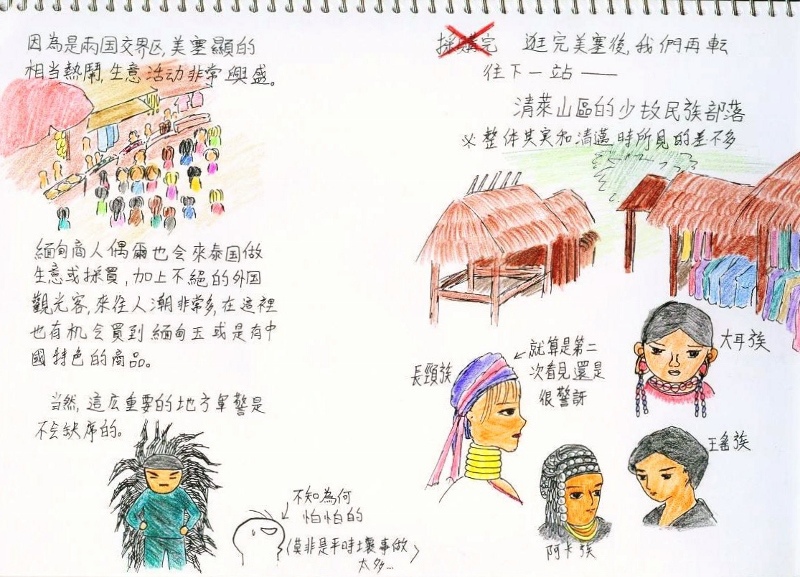 因為是兩国交界区,美塞顯的
相当熱鬧,生意活动非常興盛。
緬甸商人偶爾也会來泰国做
生意或採買,加上不絕的外国
觀光客,來往人潮非常多,在這裡
也有机会買到緬甸玉或是有中
國特色的商品。
当然,這広重要的地方軍警是
不会缺席的。
不知為何
怕怕的
(莫非是平時壞事做
太多...)
採購完 逛完美塞後,我們再転
往下一站——
清萊山區的少数民族部落
※整体其实和清邁時所見的差不多
長頸族
←就算是第二
次看見還是
很驚訝
大耳族
王瑤族
阿卡族